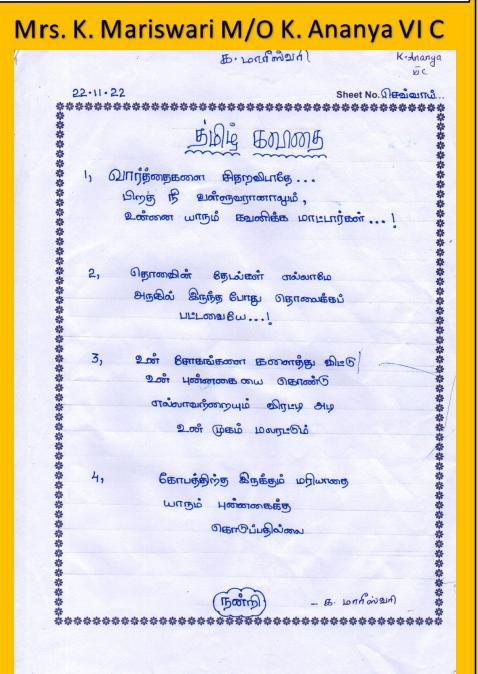 Mrs. K. Mariswari M/O K. Ananya VI C
க. மாரீஸ்வரி
K. Ananya
VI C
22.11.22
Sheet No. செவ்வாய்...
தமிழ் கவிதை
1, வார்த்தைகளை சிதறவிடாதே...
பிறகு நீ வள்ளுவரானாலும்,
உன்னை யாரும் கவனிக்க மாட்டார்கள் ...!
2, தொலைவின் தேடல்கள் எல்லாமே
அருகில் இருந்த போது தொலைக்கப்
பட்டவையே...!
3, உன் சோகங்களை களைத்து விட்டு
உன் புன்னகை யை கொண்டு
எல்லாவற்றையும் விரட்டி அடி
உன் முகம் மலரட்டும்
4, கோபத்திற்கு இருக்கும் மரியாதை
யாரும் புன்னகைக்கு
கொடுப்பதில்லை
நன்றி
- க. மாரீஸ்வரி